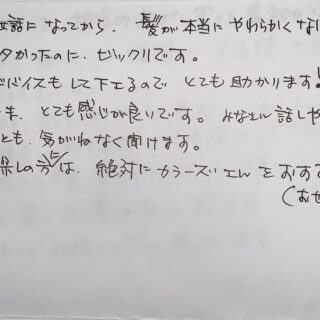 世話になってから、髪が本当にやわらかくな
タかったのに、ビックリです。
ドバイスもして下さるので とても助かります!
キ、とても感じが良いです。みなさん話しや
とも、気がねなく聞けます。
しの方には、絶対にカラーズさんをおすす
(おせ